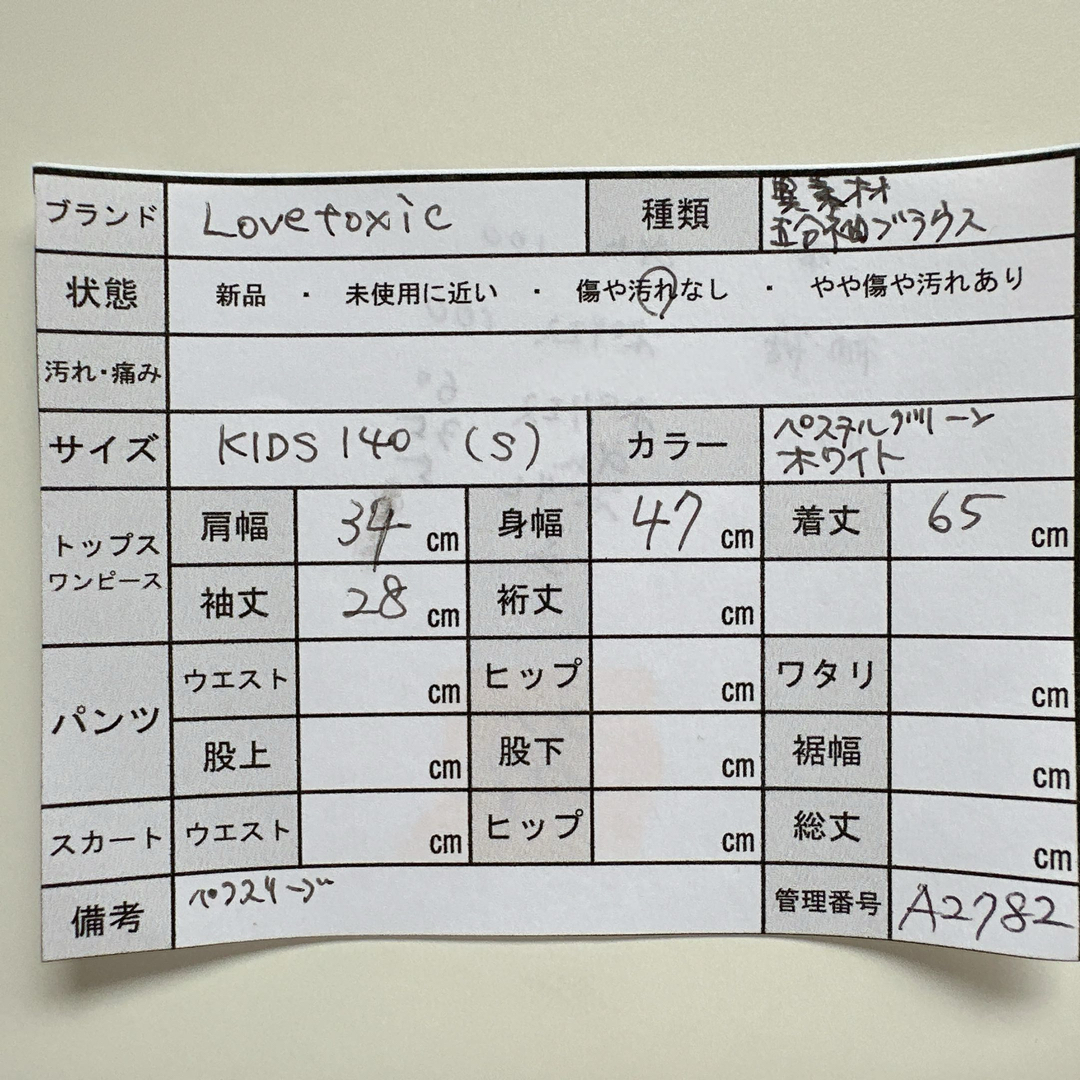 ブランド Lovetoxic 種類 異素材
五分袖ブラウス
状態 新品 ・ 未使用に近い ・ 傷や汚れなし ・ やや傷や汚れあり
汚れ・痛み
サイズ KIDS 140 (S) カラー パステルグリーン
ホワイト
トップス
ワンピース
肩幅 34 cm 身幅 47 cm 着丈 65 cm
袖丈 28 cm 裄丈 cm
パンツ
ウエスト cm ヒップ cm ワタリ cm
股上 cm 股下 cm 裾幅 cm
スカート ウエスト cm ヒップ cm 総丈 cm
備考 パフスリーブ 管理番号 A2782